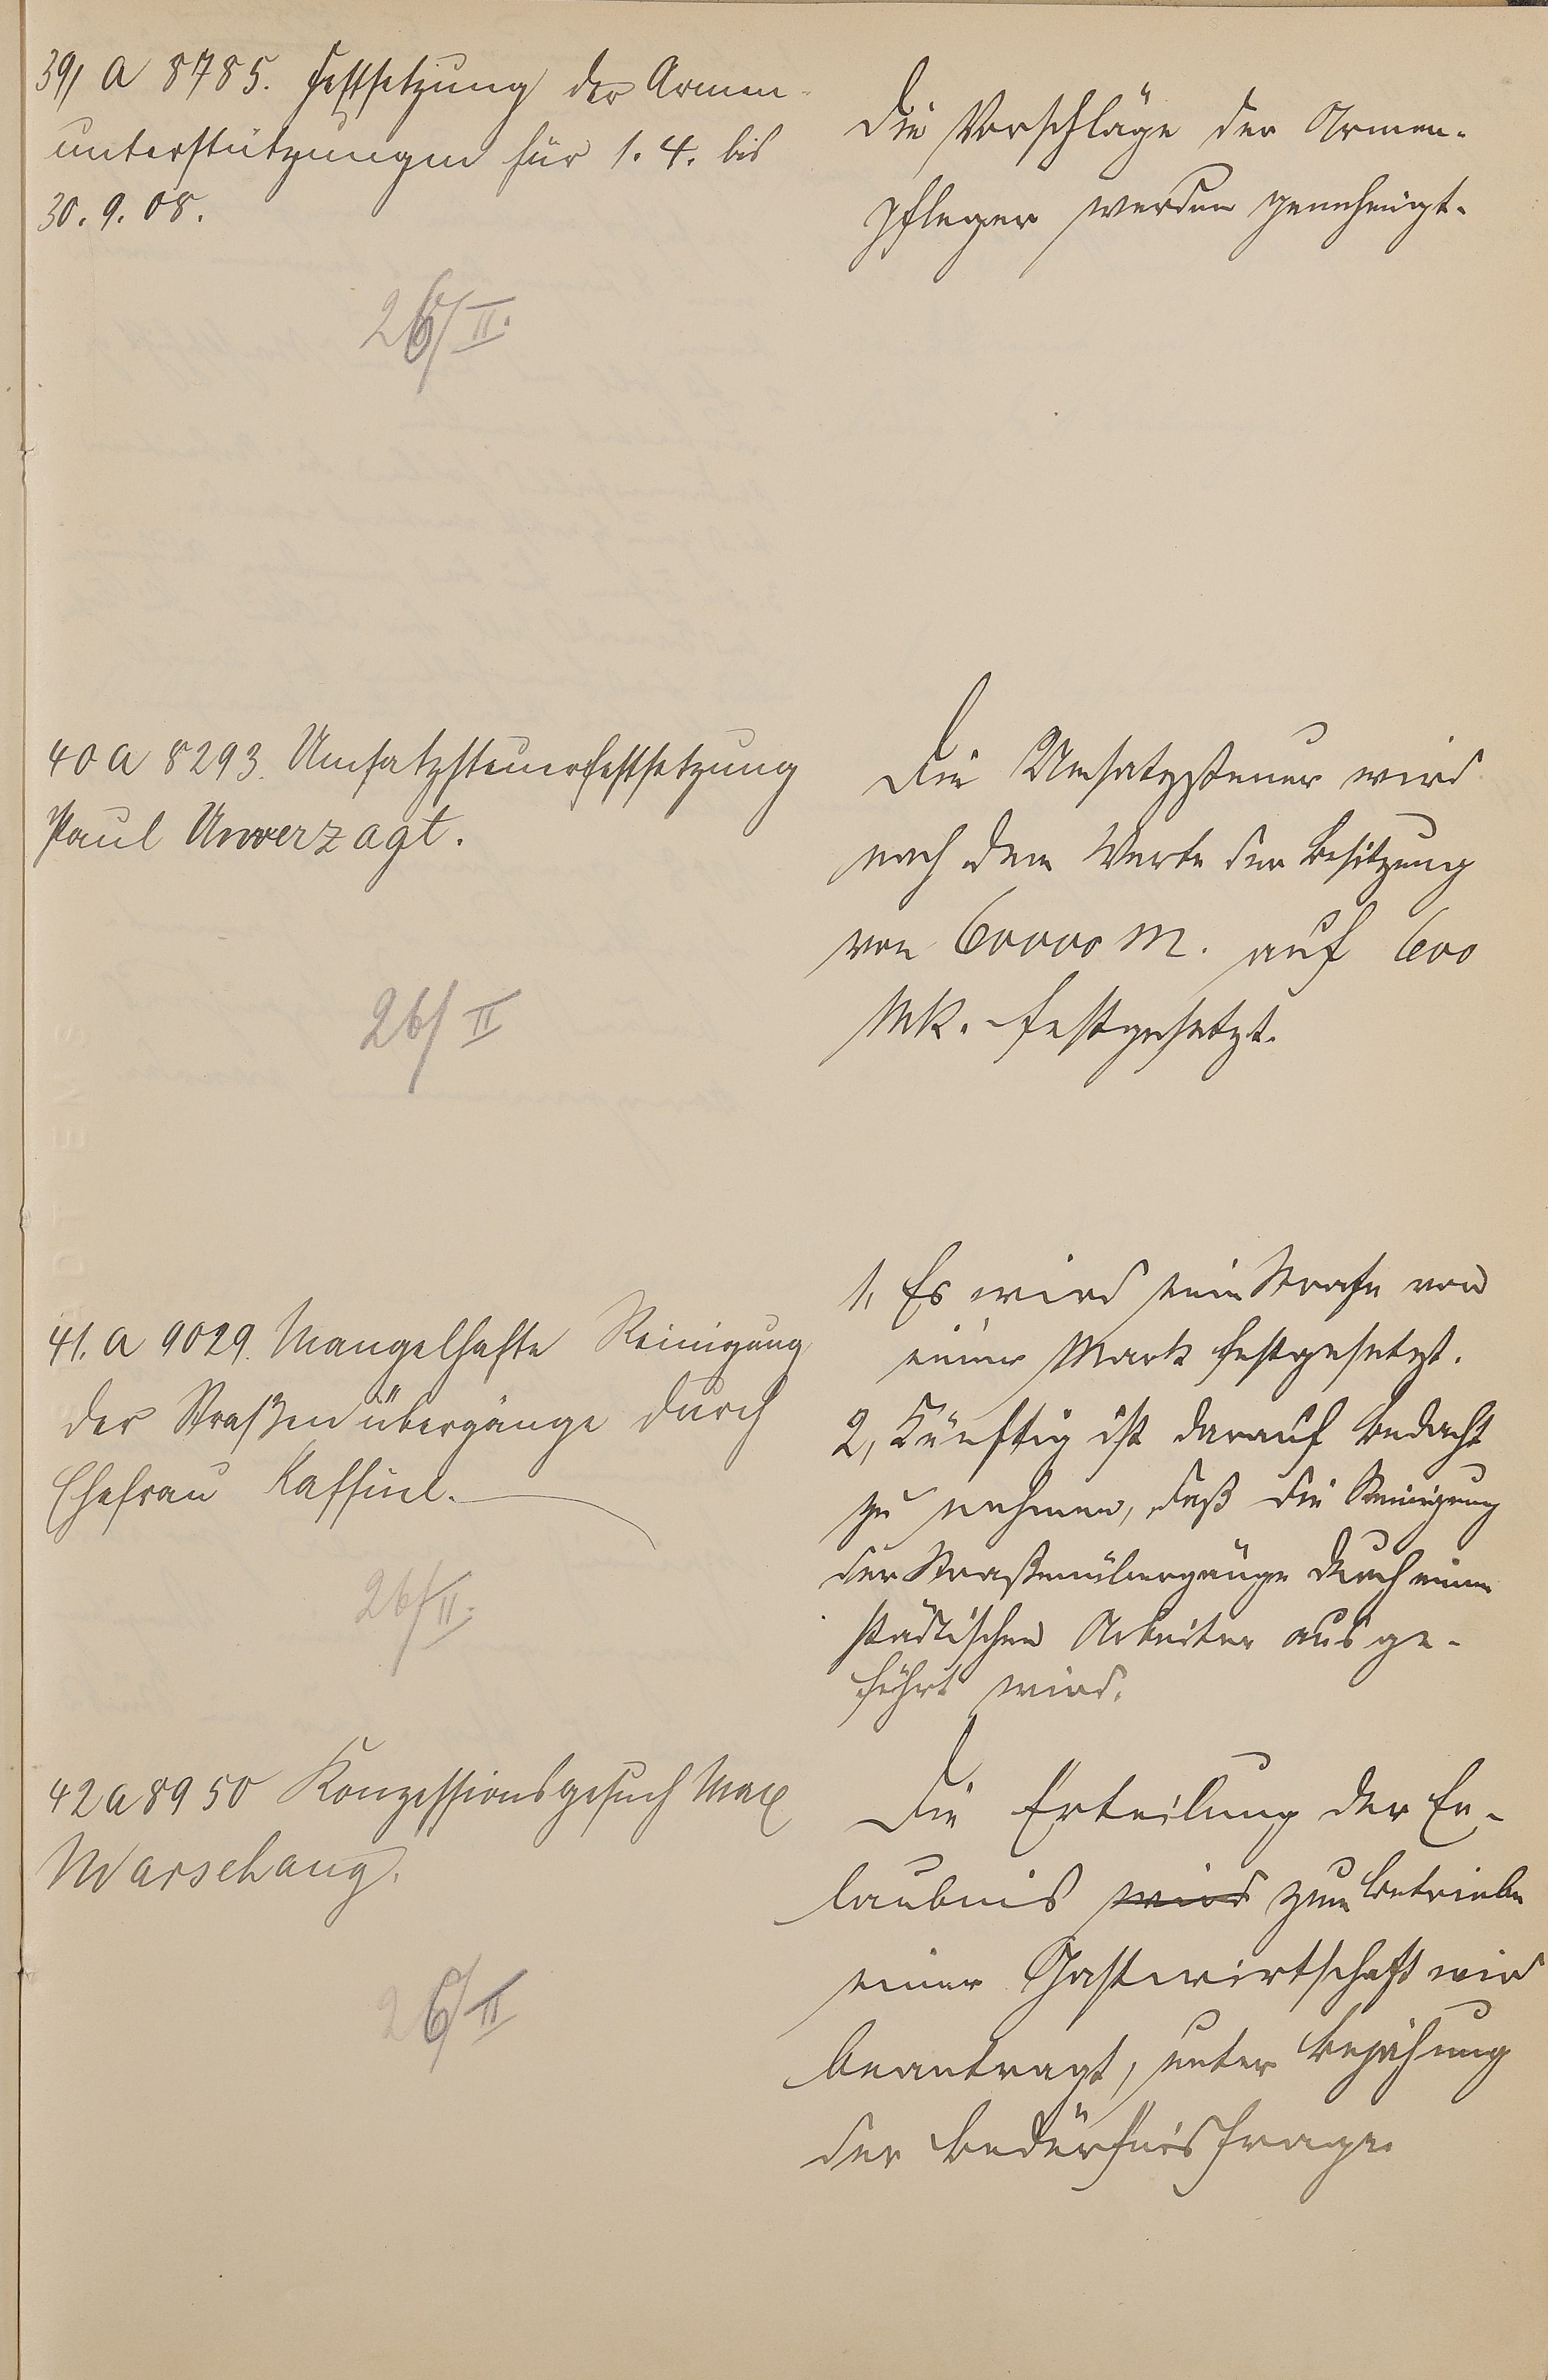 39/ A 8785. Festsetzung der Armen-
unterstützungen für 1. 4. bis
30. 9. 08.
26/II.
Die Vorschläge der Armen-
pfleger werden genehmigt.
40 A 8293. Umsatzsteuerfestsetzung
Paul Unverzagt.
26/II
Die Umsatzsteuer wird
nach dem Werte der Besitzung
von 60000 M. auf 600
Mk. festgesetzt.
41. A 9029. Mangelhafte Reinigung
der Straßenübergänge durch
Ehefrau Kaffine.
26/II.
1, Es wird eine Strafe von
einer Mark festgesetzt.
2, Künftig ist darauf Bedacht
zu nehmen, daß die Reinigung
der Straßenübergänge durch einen
städtischen Arbeiter ausge-
führt wird.
42 A 8950 Konzessionsgesuch Max
Warschang.
26/II
Die Erteilung der Er-
laubnis wird zum Betriebe
einer Gastwirtschaft wird
beantragt, unter Bejahung
der Bedürfnisfrage.